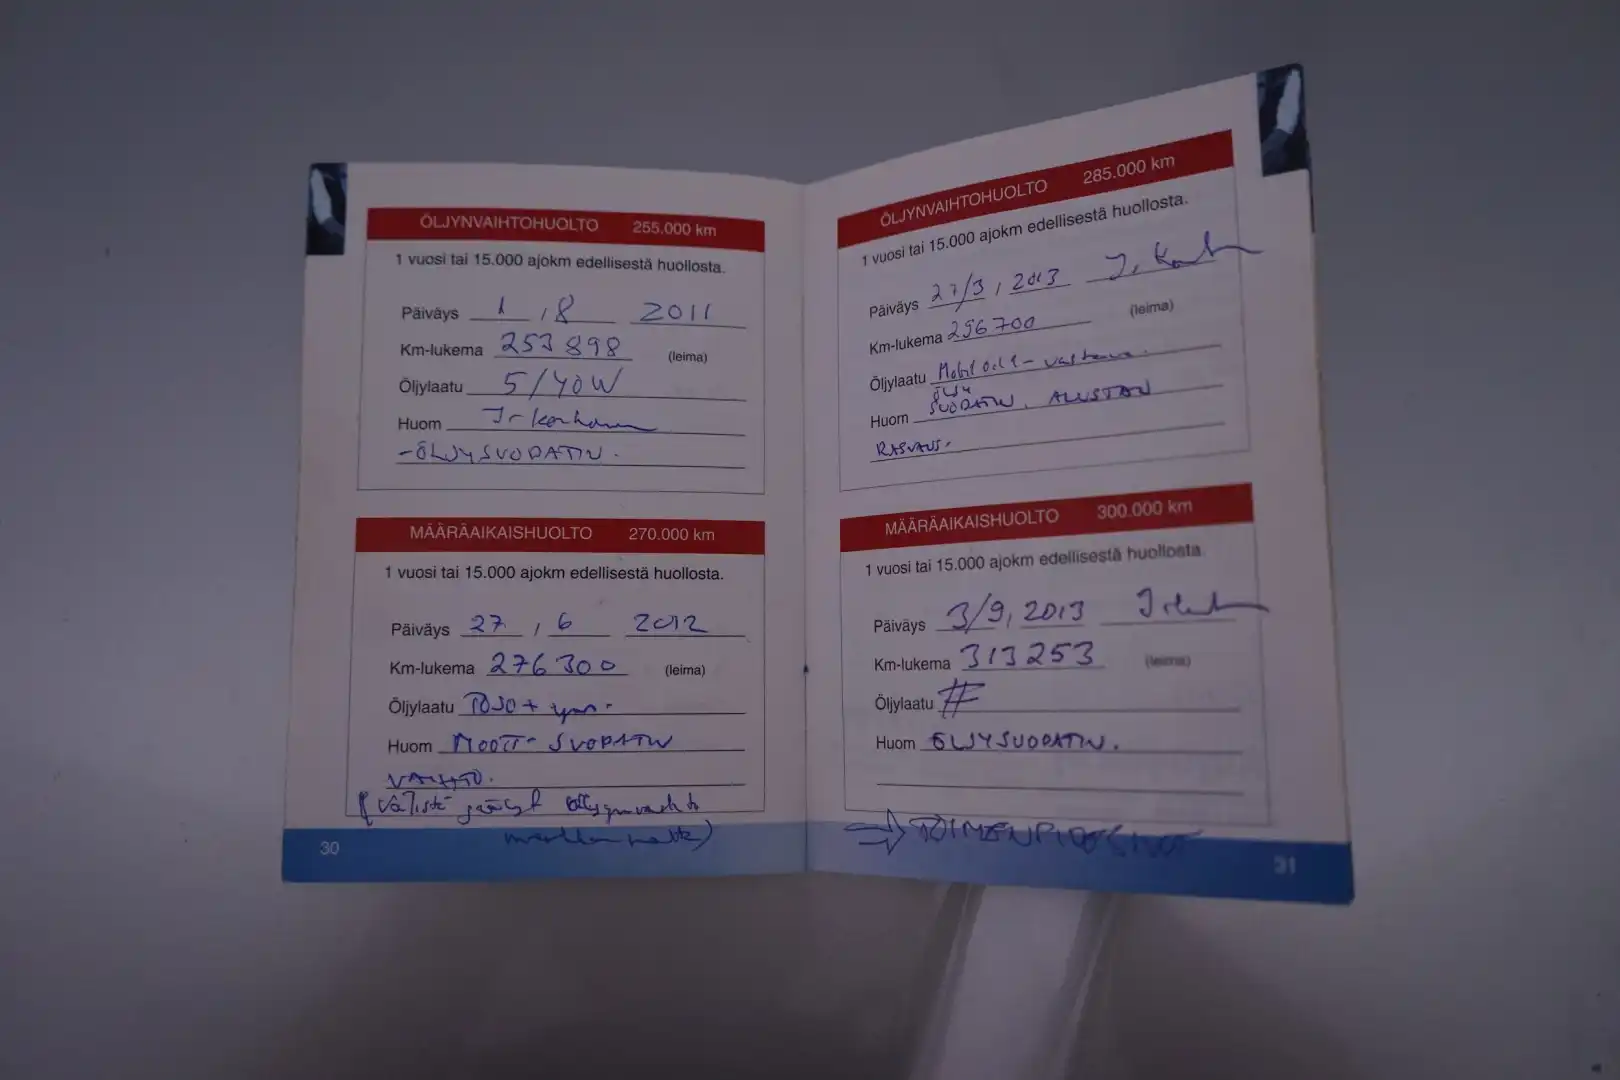 ÖLJYNVAIHTOHUOLTO 255.000 km
1 vuosi tai 15.000 ajokm edellisestä huollosta.
Päiväys 1 / 8 2011
Km-lukema 253 898 (leima)
Öljylaatu 5/40W
Huom
-ÖLJYSUODATIN.
MÄÄRÄAIKAISHUOLTO 270.000 km
1 vuosi tai 15.000 ajokm edellisestä huollosta.
Päiväys 27 / 6 2012
Km-lukema 276 300 (leima)
Öljylaatu
Huom SUODATIN
VAIHTO.
30
ÖLJYNVAIHTOHUOLTO 285.000 km
1 vuosi tai 15.000 ajokm edellisestä huollosta.
Päiväys 27/3, 2013
Km-lukema 296 700 (leima)
Öljylaatu Mobil
ÖLJY
Huom SUODATIN. ALUSTAN
RASVAUS.
MÄÄRÄAIKAISHUOLTO 300.000 km
1 vuosi tai 15.000 ajokm edellisestä huollosta.
Päiväys 3/9, 2013
Km-lukema 313253 (leima)
Öljylaatu #
Huom ÖLJYSUODATIN.
31